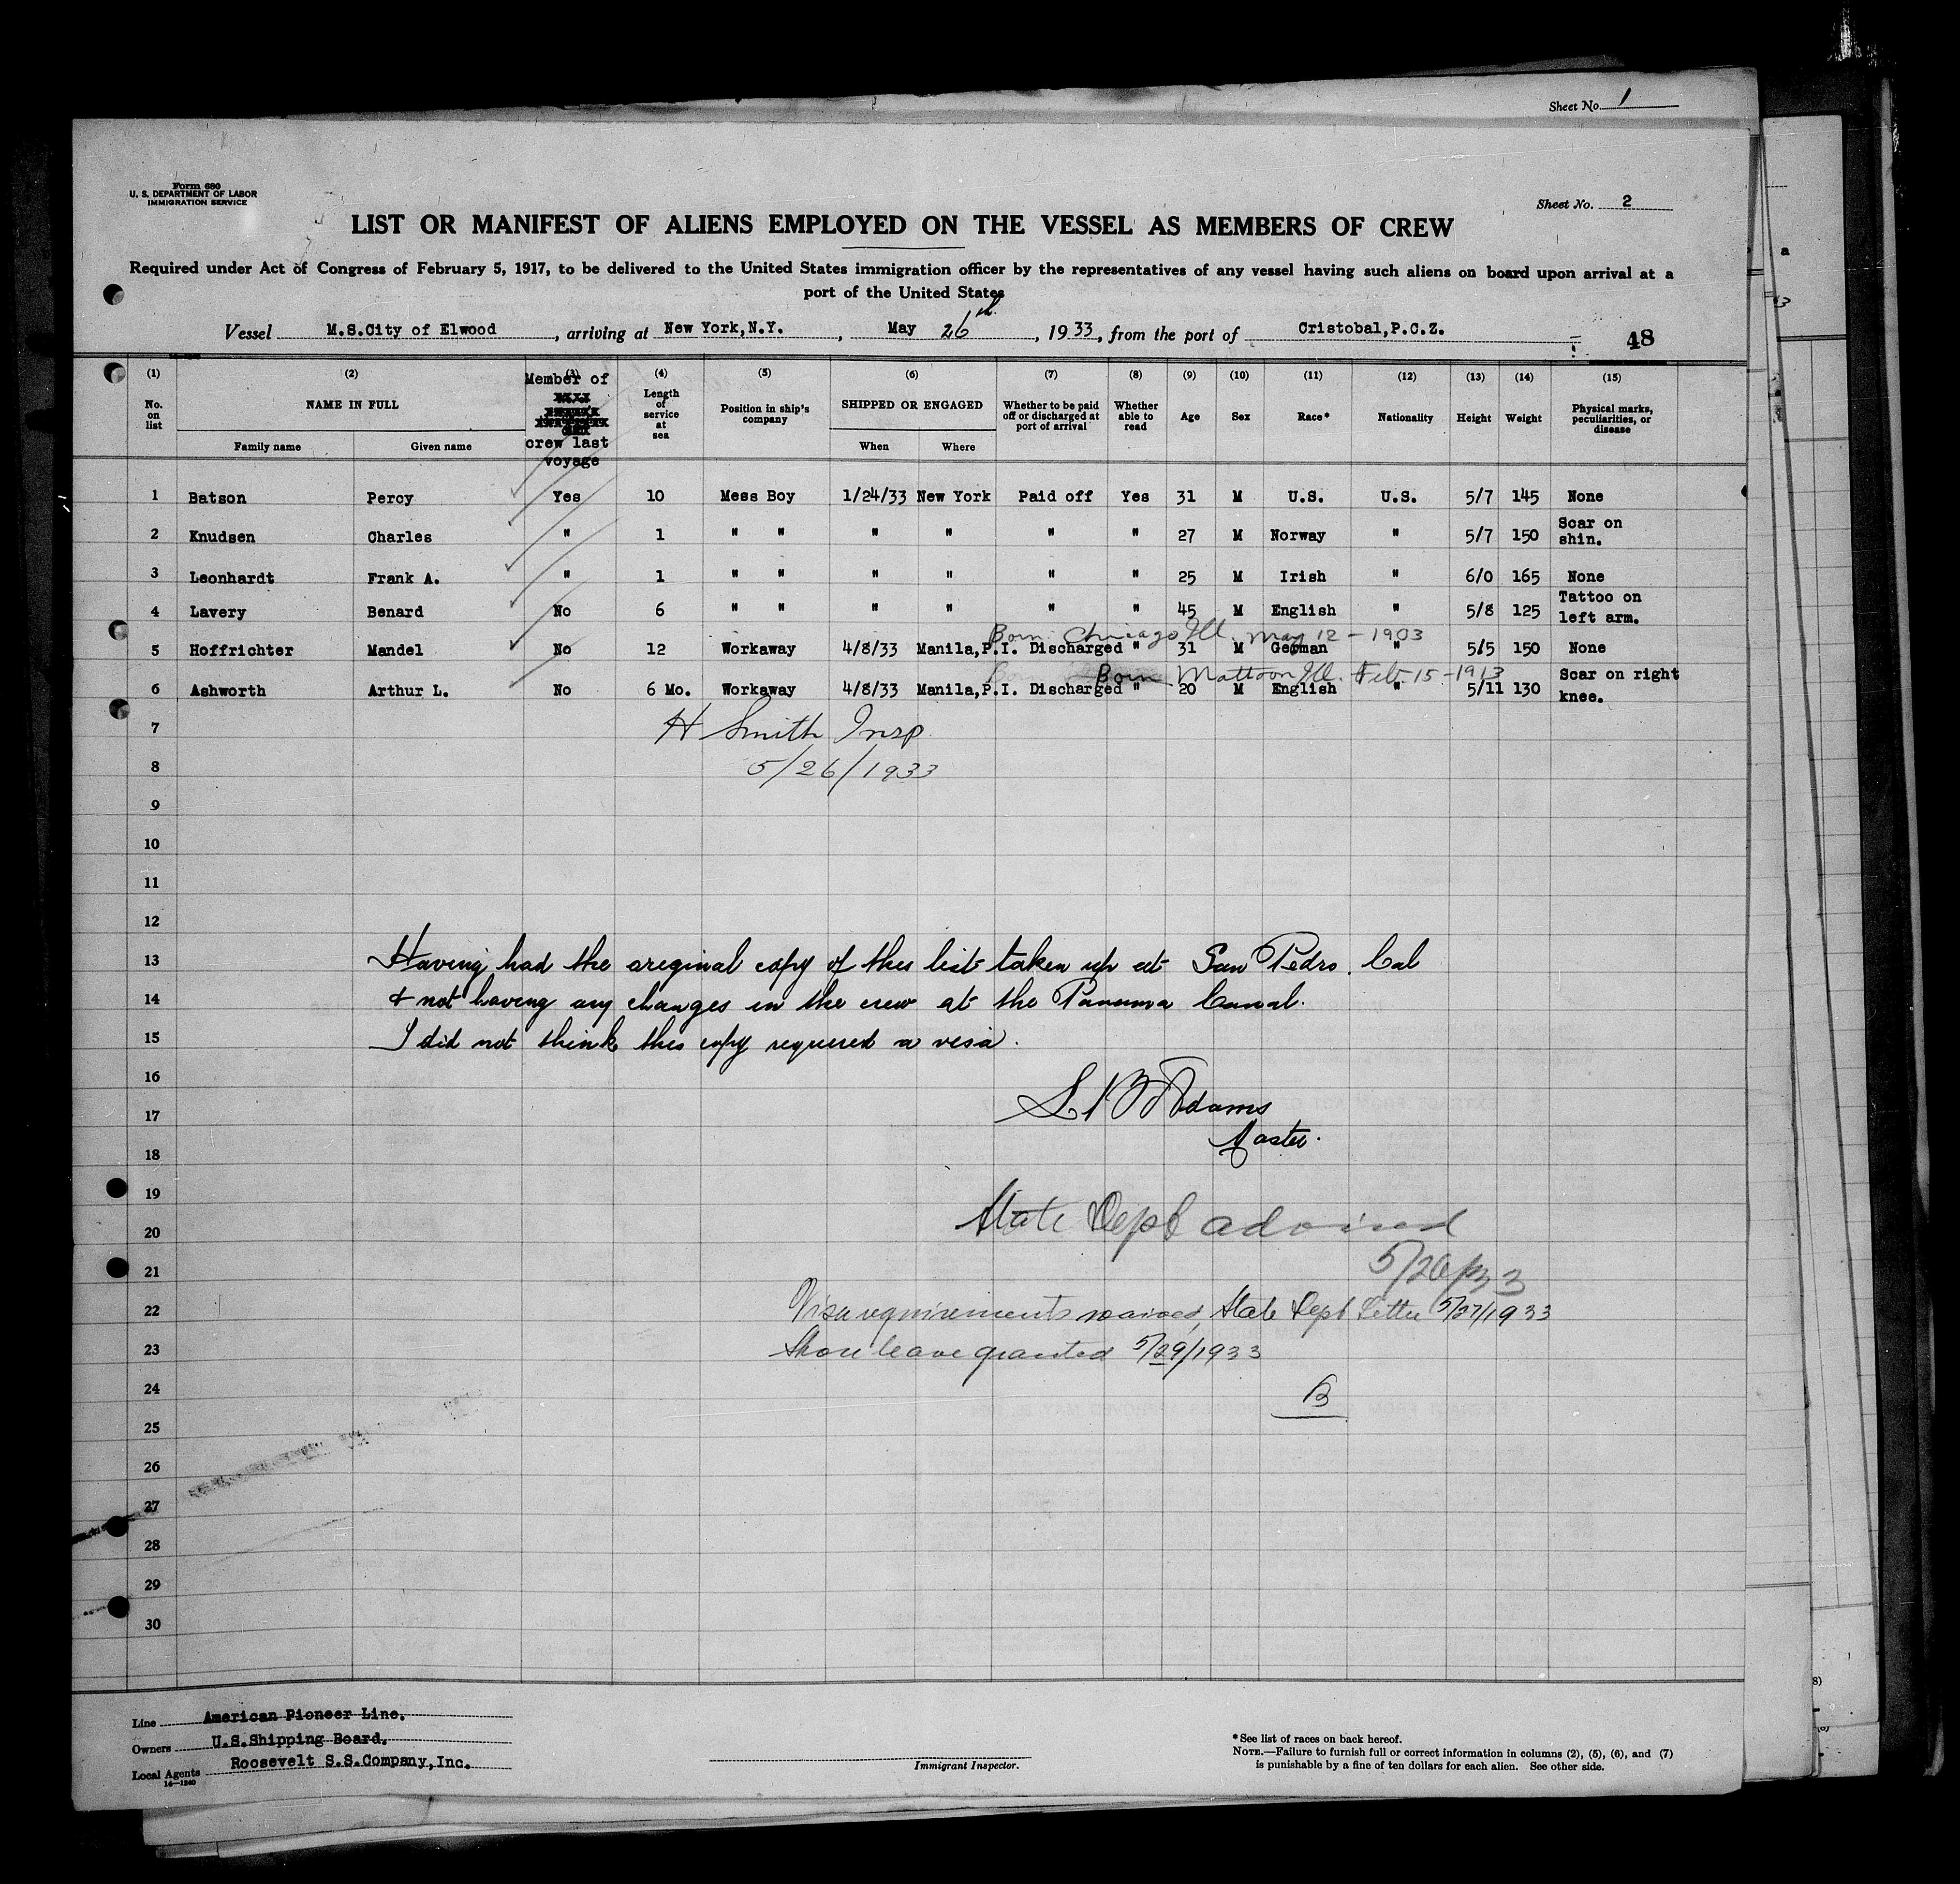 Sheet No. 1
Form 680
U. S. DEPARTMENT OF LABOR
IMMIGRATION SERVICE
Sheet No. 2
LIST OR MANIFEST OF ALIENS EMPLOYED ON THE VESSEL AS MEMBERS OF CREW
Required under Act of Congress of February 5, 1917, to be delivered to the United States immigration officer by the representatives of any vessel having such aliens on board upon arrival at a
port of the United States
Vessel M.S.City of Elwood, arriving at New York,N.Y., May 26th, 1933, from the port of Cristobal,P.C.Z.
48
(1) (2) (3) (4) (5) (6) (7) (8) (9) (10) (11) (12) (13) (14) (15)
No. on list NAME IN FULL Family name Given name Member of crew last voyage Length of service at sea Position in ship's company SHIPPED OR ENGAGED When Where Whether to be paid off or discharged at port of arrival Whether able to read Age Sex Race* Nationality Height Weight Physical marks, peculiarities, or disease
1 Batson Percy Yes 10 Mess Boy 1/24/33 New York Paid off Yes 31 M U.S. U.S. 5/7 145 None
2 Knudsen Charles " 1 " " " " " " 27 M Norway " 5/7 150 Scar on shin.
3 Leonhardt Frank A. " 1 " " " " " " 25 M Irish " 6/0 165 None
4 Lavery Benard No 6 " " " " " " 45 M English " 5/8 125 Tattoo on left arm.
Born Chicago Ill. May 12 - 1903
5 Hoffrichter Mandel No 12 Workaway 4/8/33 Manila,P.I. Discharged " 31 M German " 5/5 150 None
Born Mattoon Ill. Feb. 15 - 1913
6 Ashworth Arthur L. No 6 Mo. Workaway 4/8/33 Manila,P.I. Discharged " 20 M English " 5/11 130 Scar on right knee.
7 H Smith Insp.
8 5/26/1933
9
10
11
12
13 Having had the original copy of this list taken up at San Pedro. Cal
14 & not having any changes in the crew at the Panama Canal.
15 I did not think this copy required a visa.
16
17 Adams
Master.
18
19
20 State Dept advised
21 5/26/33
22 Visa requirements waived, State Dept Letter 5/27/1933
23 Shore leave granted 5/29/1933
24 B
25
26
27
28
29
30
Line American Pioneer Line.
Owners U.S.Shipping Board.
Local Agents Roosevelt S.S.Company,Inc.
14—1240
Immigrant Inspector.
*See list of races on back hereof.
NOTE.—Failure to furnish full or correct information in columns (2), (5), (6), and (7)
is punishable by a fine of ten dollars for each alien. See other side.